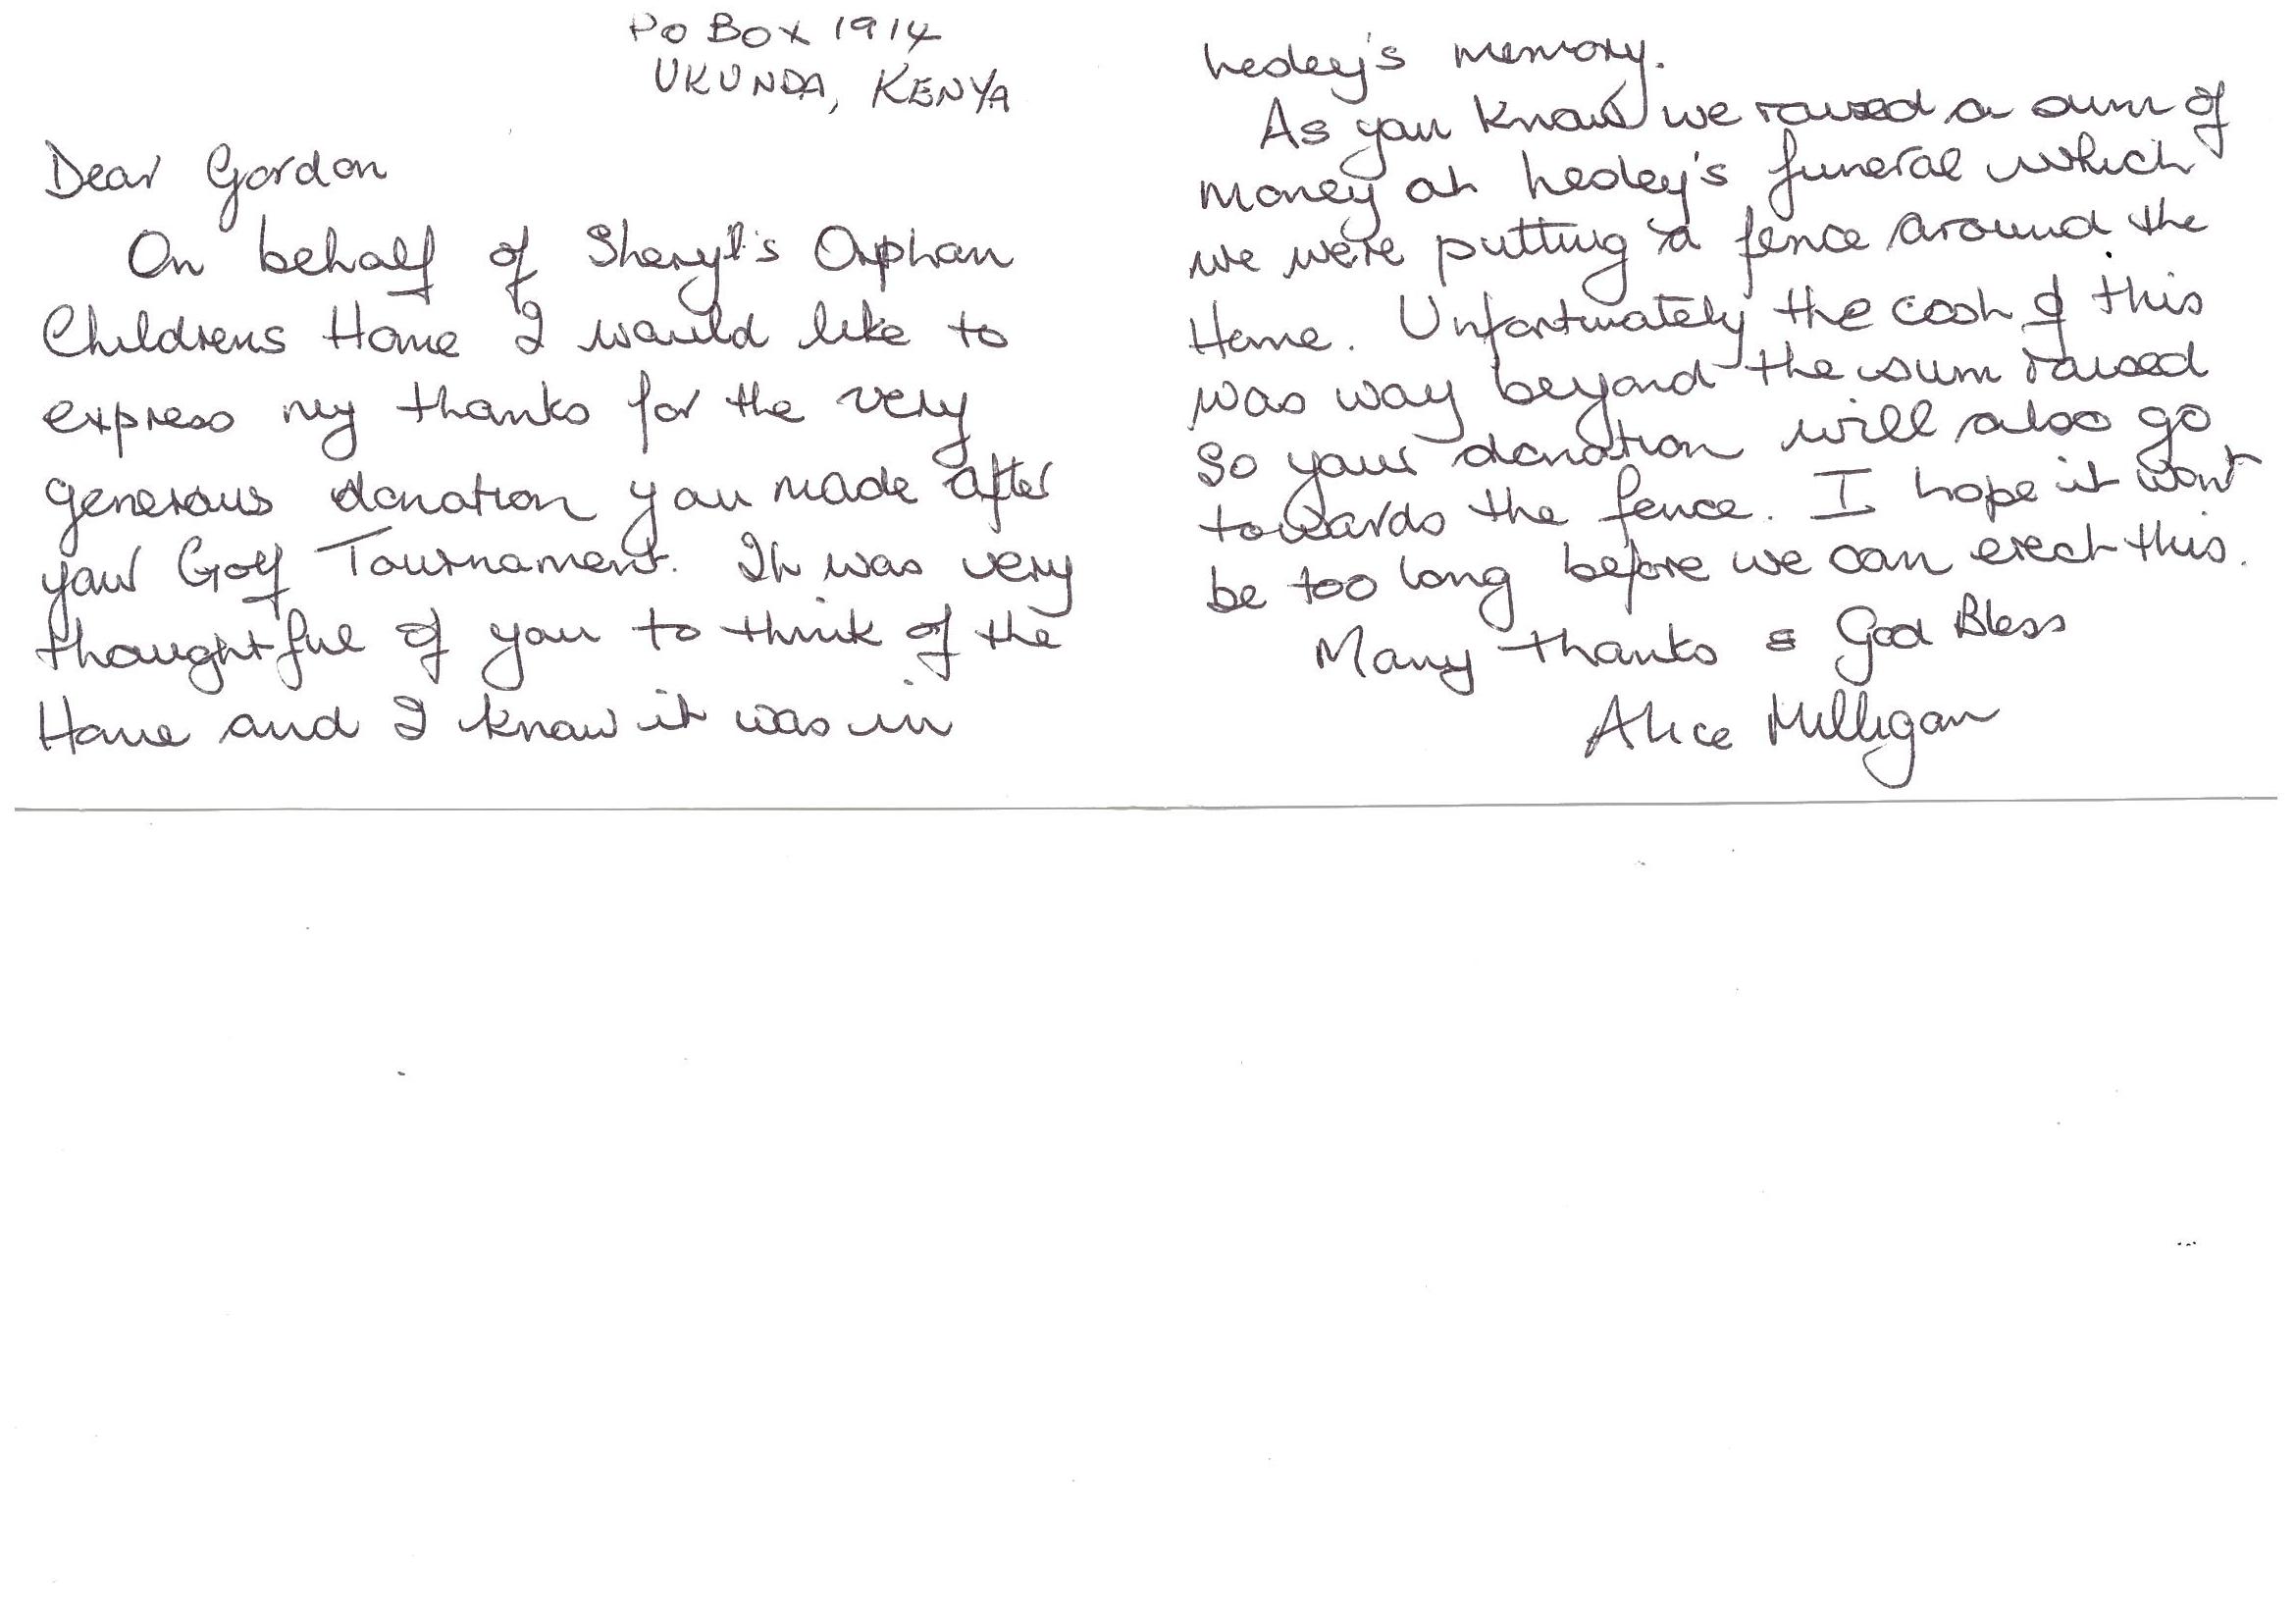 PO BOX 1914
UKUNDA, KENYA
Dear Gordon
On behalf of Sheryl's Orphan
Childrens Home I would like to
express my thanks for the very
generous donation you made after
your Golf Tournament. It was very
thoughtful of you to think of the
Home and I know it was in
hedley's memory.
As you know we raised a sum of
money at hedley's funeral which
we were putting a fence around the
Home. Unfortunately the cost of this
was way beyond the sum raised
so your donation will also go
towards the fence. I hope it wont
be too long before we can erect this.
Many thanks & God Bless
Alice Milligan